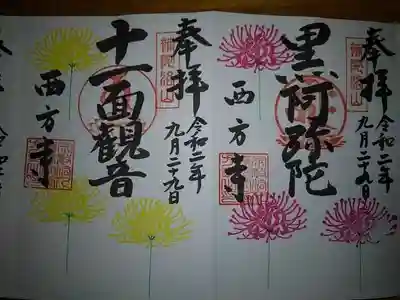 奉拝
補陀洛山
令和二年
九月二十九日
黒阿弥陀
西方寺
奉拝
補陀洛山
令和二年
九月二十九日
十一面観音
西方寺